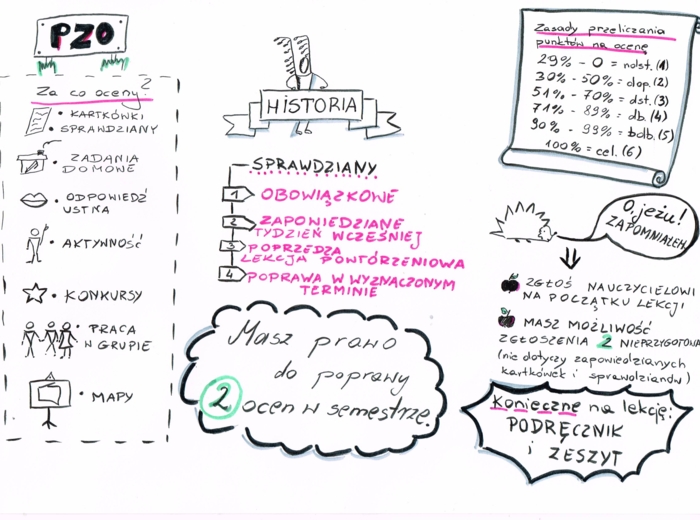 PZO
Za co oceny?
• KARTKÓWKI
• SPRAWDZIANY
• ZADANIA
DOMOWE
• ODPOWIEDŹ
USTNA
• AKTYWNOŚĆ
• KONKURSY
• PRACA
W GRUPIE
• MAPY
HISTORIA
SPRAWDZIANY
1 OBOWIĄZKOWE
2 ZAPOWIEDZIANE
TYDZIEŃ WCZEŚNIEJ
3 POPRZEDZA
LEKCJA POWTÓRZENIOWA
4 POPRAWA W WYZNACZONYM
TERMINIE
Masz prawo
do poprawy
2 ocen w semestrze.
Zasady przeliczania
punktów na ocenę
29% - 0 = ndst. (1)
30% - 50% = dop. (2)
51% - 70% = dst. (3)
71% - 89% = db. (4)
90% - 99% = bdb. (5)
100% = cel. (6)
O, jeżu!
ZAPOMNIAŁEM
ZGŁOŚ NAUCZYCIELOWI
NA POCZĄTKU LEKCJI
MASZ MOŻLIWOŚĆ
ZGŁOSZENIA 2 NIEPRZYGOTOWA
(nie dotyczy zapowiedzianych
kartkówek i sprawdzianów)
Konieczne na lekcję:
PODRĘCZNIK
i ZESZYT